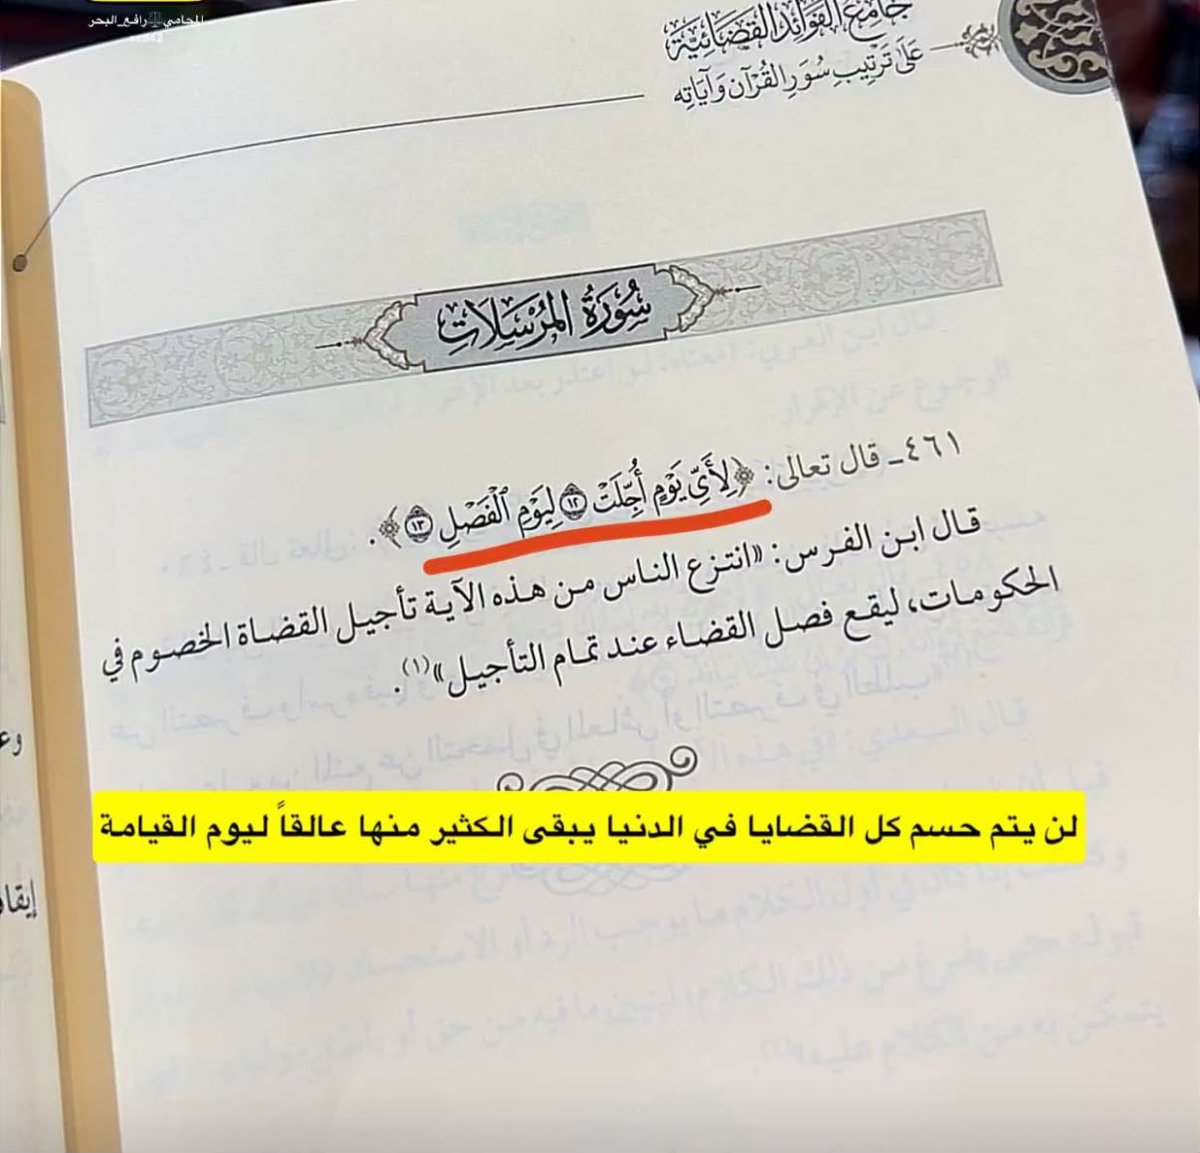 المحامي رافع_البحر
جامع الفوائد القضائية
على ترتيب سور القرآن وآياته
سُورَةُ المُرْسَلَاتِ
٤٦١ـ قال تعالى: ﴿لِأَيِّ يَوْمٍ أُجِّلَتْ ١٢ لِيَوْمِ ٱلْفَصْلِ ١٣﴾.
قال ابن الفرس: «انتزع الناس من هذه الآية تأجيل القضاة الخصوم في
الحكومات، ليقع فصل القضاء عند تمام التأجيل»(١).
لن يتم حسم كل القضايا في الدنيا يبقى الكثير منها عالقاً ليوم القيامة